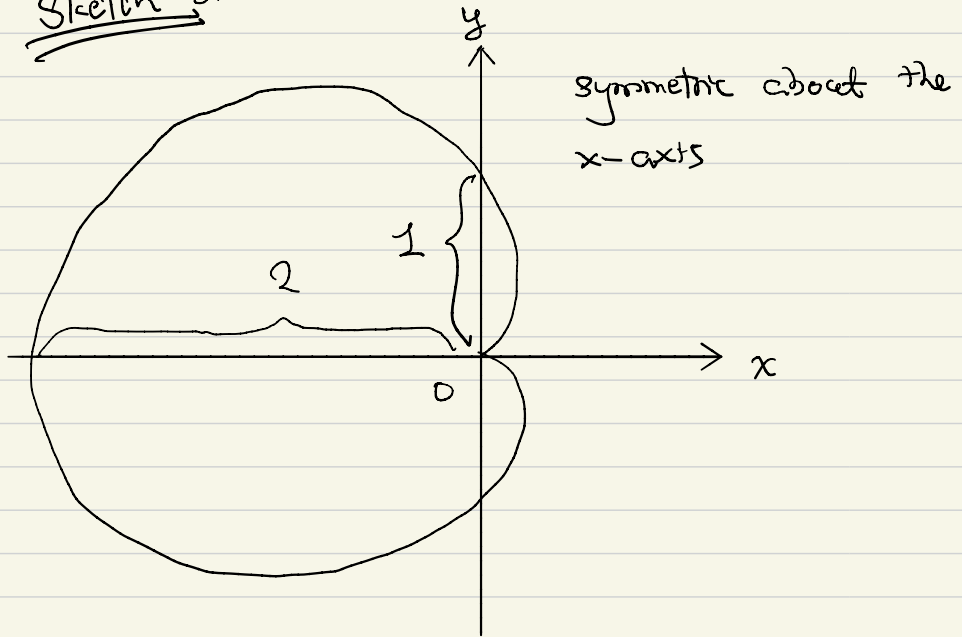 Sketch
y
symmetric about the
x-axis
1
2
0
x